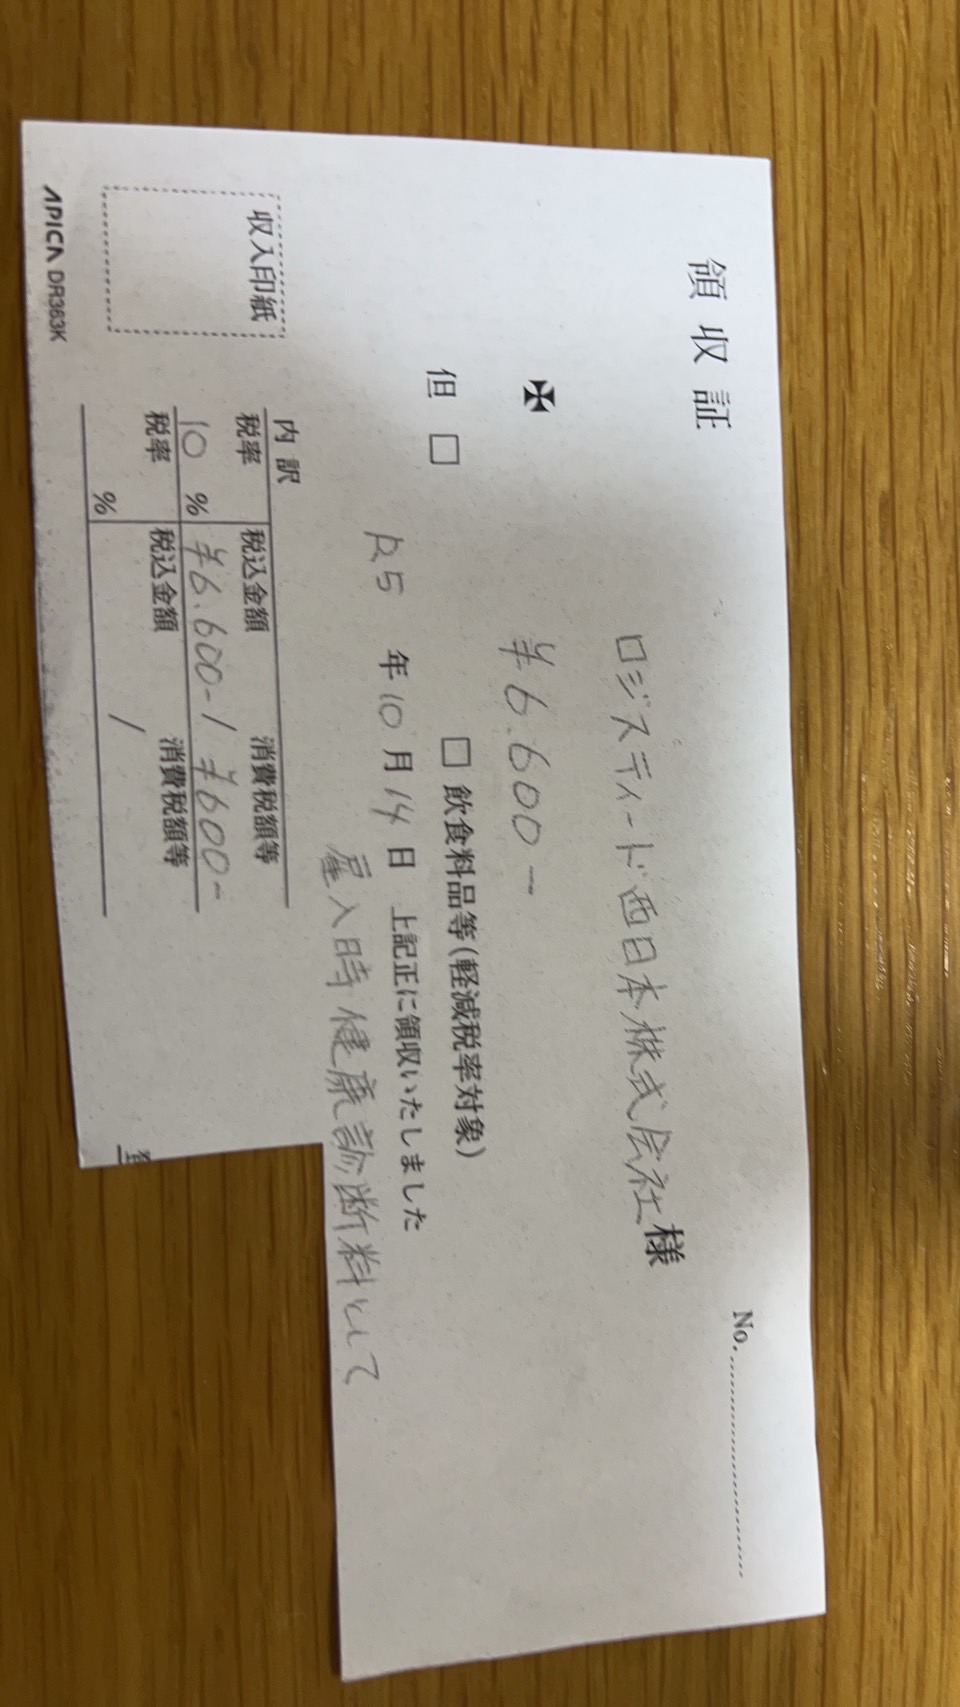 領収証
No.
ロジスティード西日本株式会社様
¥6.600-
但 □ □ 飲食料品等(軽減税率対象)
R5年10月14日 上記正に領収いたしました
雇入時健康診断料として
内訳
税率 税込金額 消費税額等
10% ¥6.600-/ ¥600-
税率 税込金額 消費税額等
% /
収入印紙
APICA DR363K